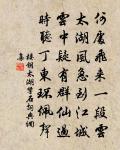 何處飛來一段雲
太湖風急到江城
雲中疑有群仙過
時聽丁東環珮聲
樓鑰太湖
集